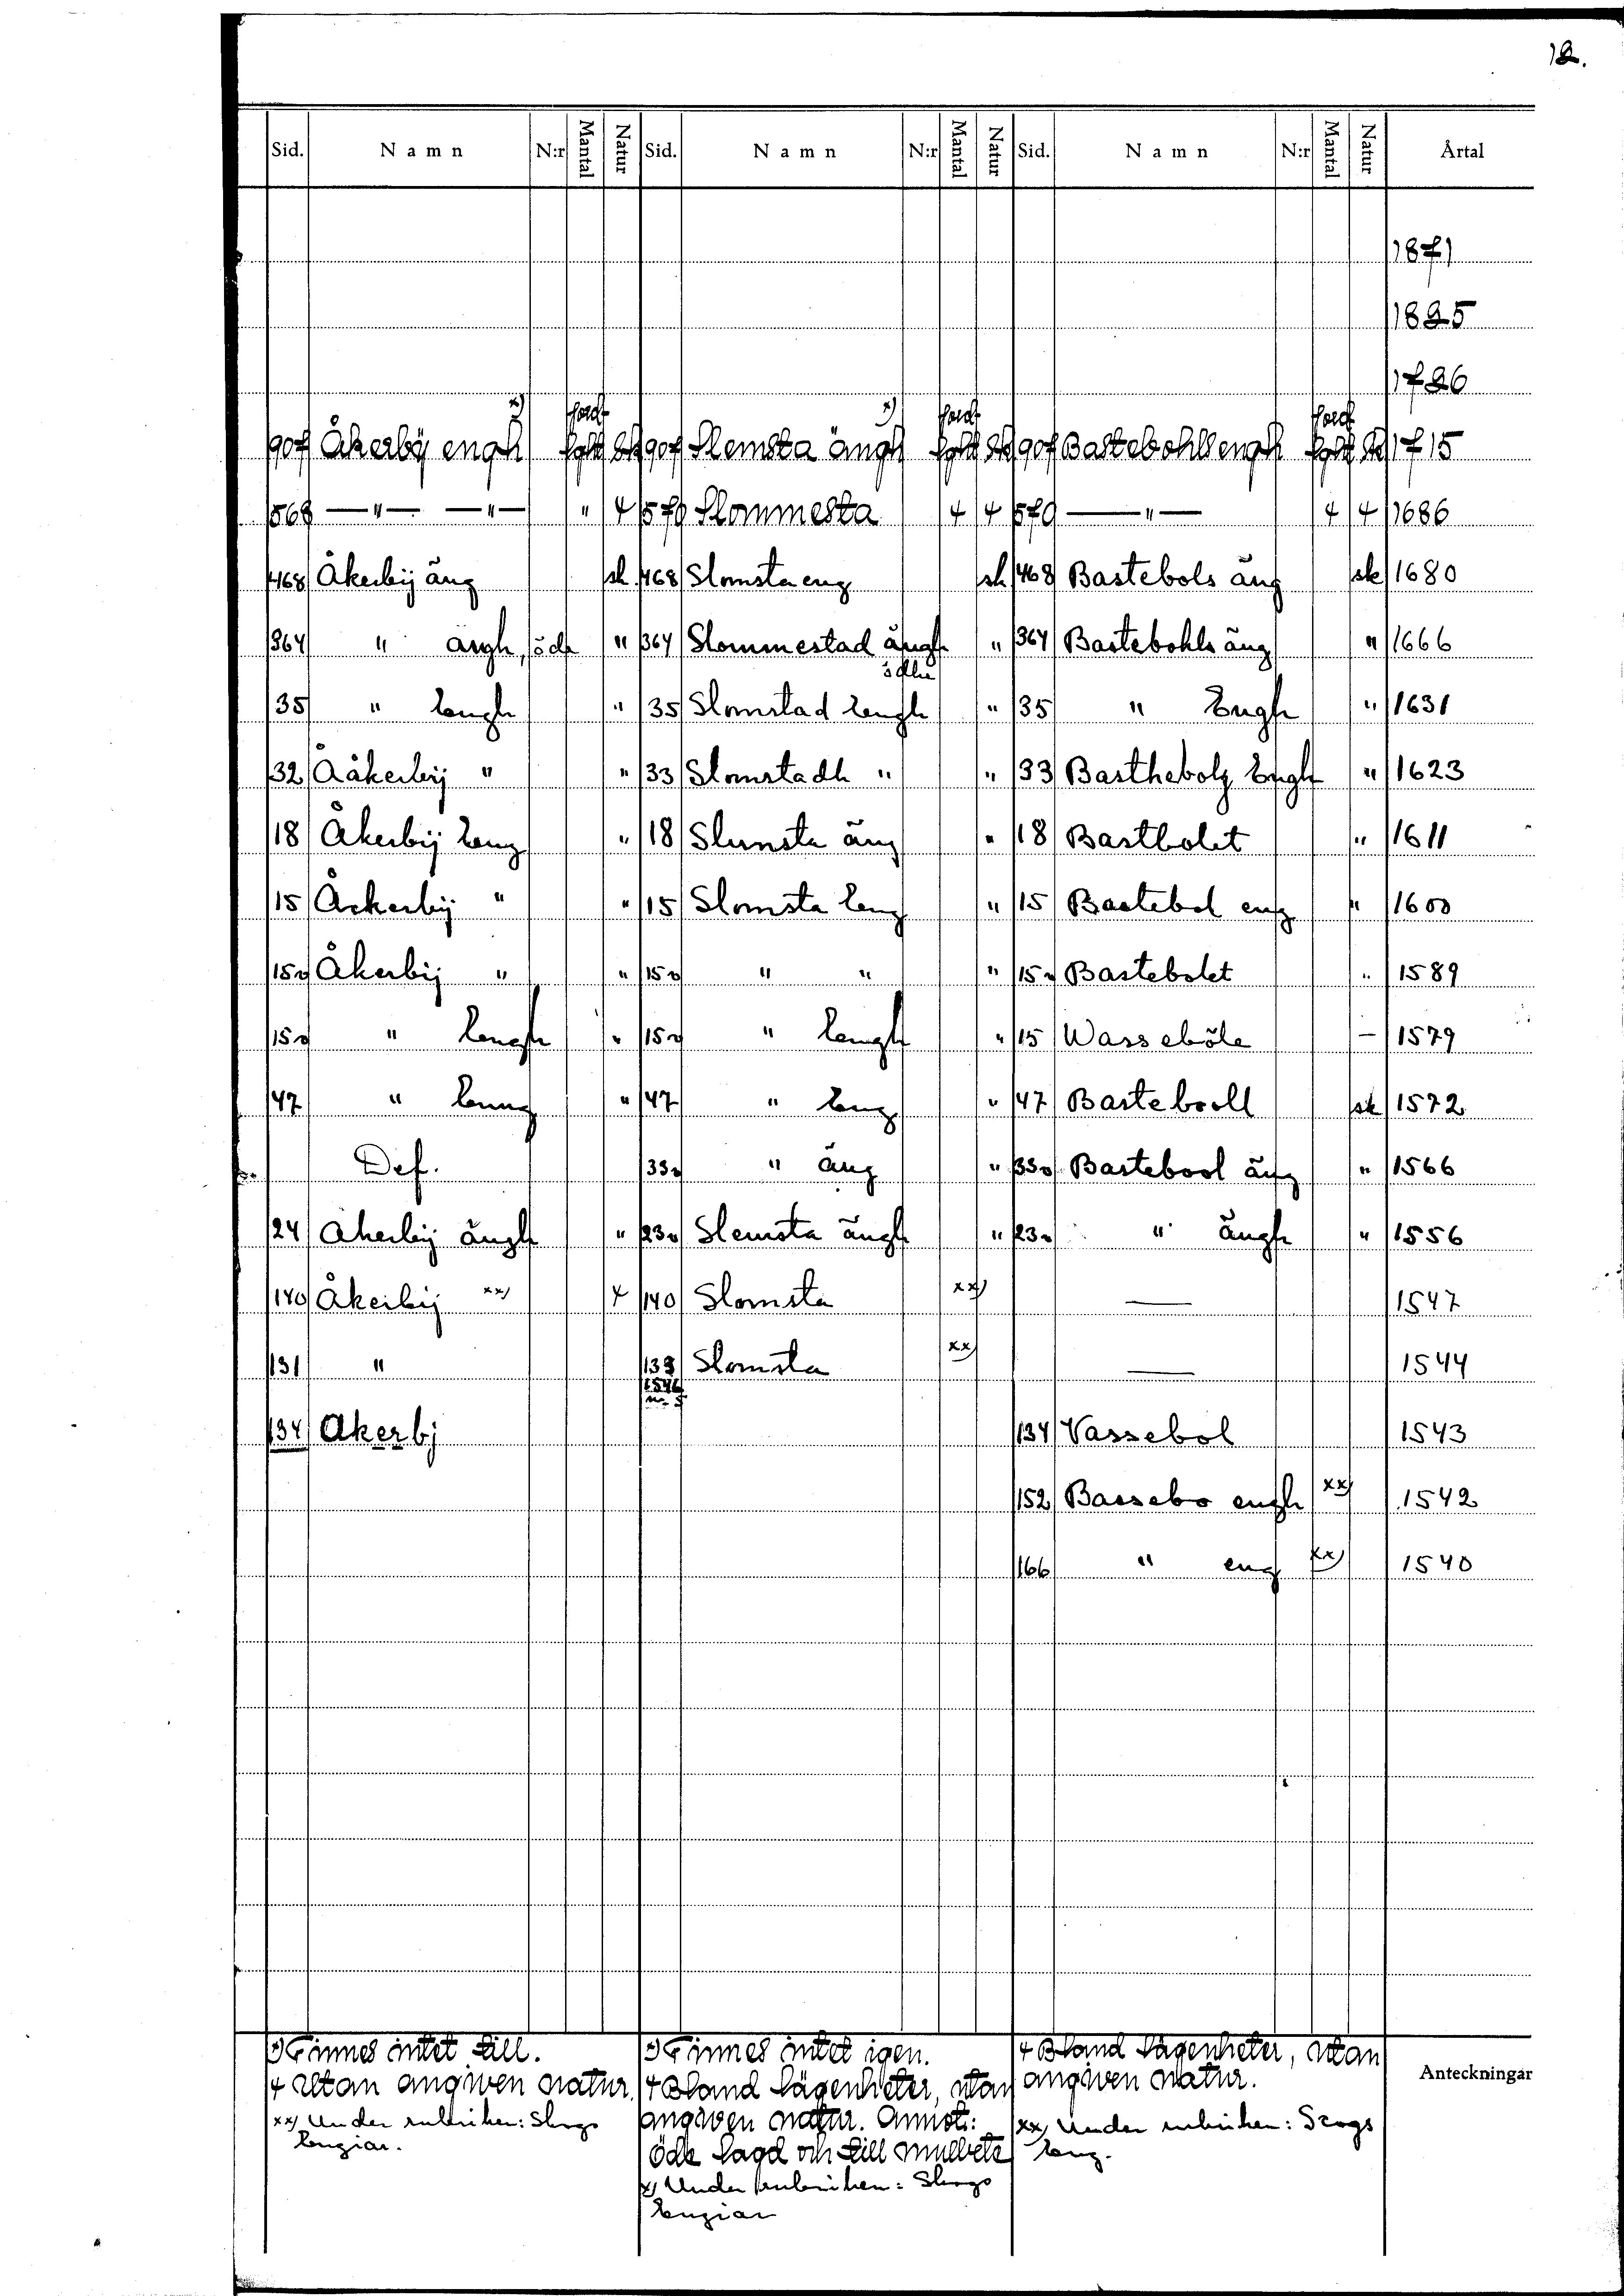 12.
Sid. Namn N:r Mantal Natur Sid. Namn N:r Mantal Natur Sid. Namn N:r Mantal Natur Årtal
1871
1825
1726
x) x)
907 Åkerbÿ engh sk 907 Slemsta ängh sk 907 Bastebohls engh sk 1715
568 —"— —"— " + 570 Slommesta + + 570 —"— + + 1686
468 Åkerbij äng sk 468 Slomsta eng sk 468 Bastebols äng sk 1680
364 " ängh, öde " 364 Slommestad ängh " 364 Bastebohls äng " 1666
35 " Eengh " 35 Slomstad Eengh " 35 " Engh " 1631
32 Ååkerbij " " 33 Slomstadh " " 33 Basthebolz Engh " 1623
18 Åkerbij Eeng " 18 Slunsta äng " 18 Bastbolet " 1611
15 Åckerbij " " 15 Slomsta Eeng " 15 Bastebol eng " 1600
15v Åkerbij " " 15v " " " 15v Bastebolet " 1589
15v " Eengh " 15v " Eengh " 15 Wasseböle – 1579
47 " Eenng " 47 " Eeng " 47 Bastebooll sk 1572
Def. 33v " äng " 33v Bastebool äng " 1566
24 Akerbij ängh " 23v Slemsta ängh " 23v " ängh " 1556
140 Åkerbij xx) + 140 Slomsta xx) — 1547
131 " 133 Slomsta xx) — 1544
1546
134 Akerbj 134 Vassebol 1543
152 Bassebo engh xx) 1542
166 " eng xx) 1540
x) Finnes intet till.
+ Utan angiven natur.
xx) Under rubriken: Skogs
Engiar.
x) Finnes intet igen.
+ Bland lägenheter, utan
angiven natur. Annot.:
öde lagd och till mulbete
x) Under rubriken: Skogs
Engiar
+ Bland lägenheter, utan
angiven natur.
xx) Under rubriken: Scogs
Eeng.
Anteckningar